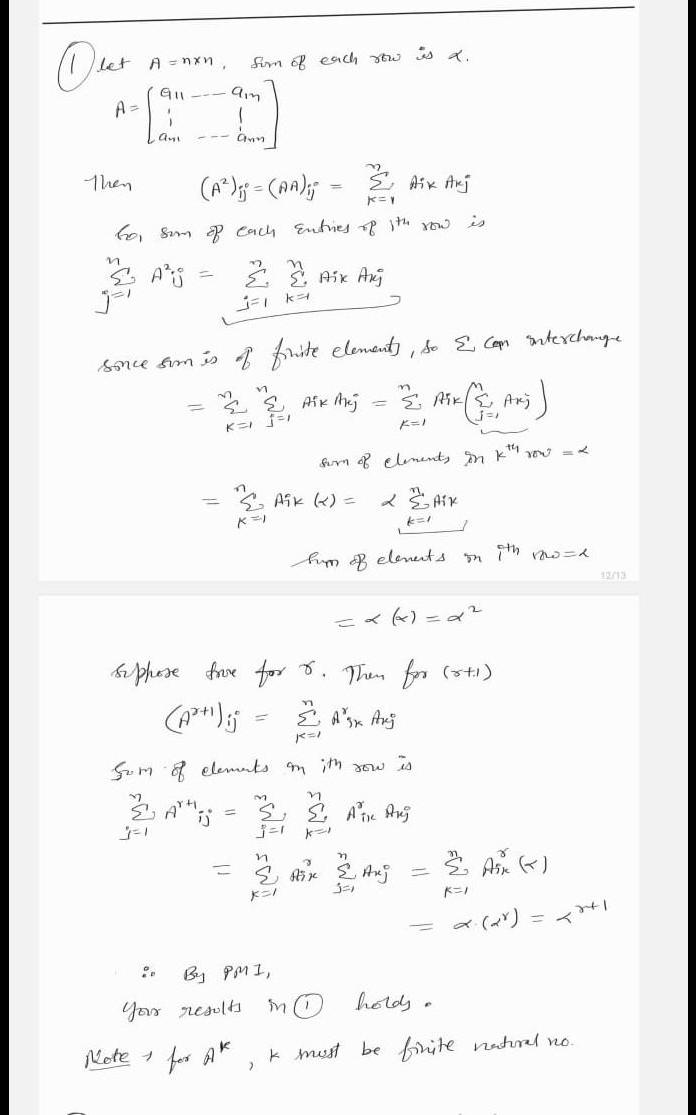 ① Let A = n×n, Sum of each row is α.
A = [a11 --- a1n
an1 --- ann]
Then (A²)ij = (AA)ij = ∑_{k=1}^{n} Aik Akj
So, sum of each entries of ith row is
∑_{j=1}^{n} A²ij = ∑_{j=1}^{n} ∑_{k=1}^{n} Aik Akj
since sum is of finite elements, so Σ can interchange
= ∑_{k=1}^{n} ∑_{j=1}^{n} Aik Akj = ∑_{k=1}^{n} Aik (∑_{j=1}^{n} Akj)
sum of elements in kth row = α
= ∑_{k=1}^{n} Aik (α) = α ∑_{k=1}^{n} Aik
Sum of elements in ith row = α
12/13
= α (α) = α²
suppose true for r. Then for (r+1)
(A^{r+1})ij = ∑_{k=1}^{n} A^r ik Akj
Sum of elements in ith row is
∑_{j=1}^{n} A^{r+1} ij = ∑_{j=1}^{n} ∑_{k=1}^{n} A^r ik Akj
= ∑_{k=1}^{n} A^r ik ∑_{j=1}^{n} Akj = ∑_{k=1}^{n} A^r ik (α)
= α.(α^r) = α^{r+1}
∴ By PMI,
Your results in ① holds.
Note → for A^k, k must be finite natural no.